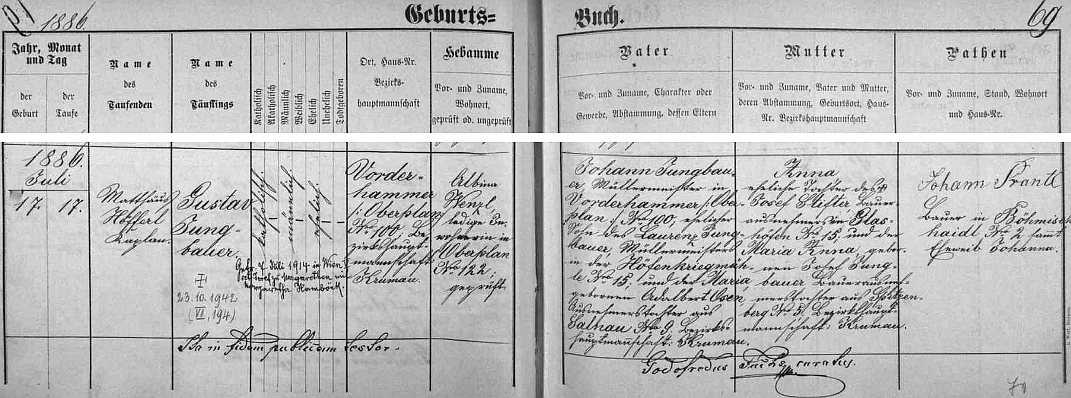 1886.
Geburts=
Buch.
69
Jahr, Monat
und Tag
der
Geburt
der
Taufe
Name
des
Taufenden
Name
des
Täuflings
Katholisch
Akatholisch
Männlich
Weiblich
Ehelich
Unehelich
Todtgeboren
Ort, Haus-Nr.
Bezirks-
hauptmannschaft
Hebamme
Vor- und Zuname,
Wohnort,
geprüft od. ungeprüft
Vater
Vor- und Zuname, Charakter oder
Gewerbe, Abstammung, dessen Eltern
Mutter
Vor- und Zuname, Vater und Mutter,
deren Abstammung, Geburtsort, Haus-
Nr. Bezirkshauptmannschaft
Pathen
Vor- und Zuname, Stand, Wohnort
und Haus-Nr.
1886.
Juli
17. 17.
Matthäus
Höpferl
Kaplan.
Gustav
Jung-
bauer.
katholisch
männlich
ehelich
Vorder-
hammer
/: Oberplan
No 100, Be-
zirkshaupt-
mannschaft
Krumau.
Albina
Wenzl
ledige In-
wohnerin in
Oberplan
No 122;
geprüft.
Getr. 7. Juli 1914 in Wien
23.10.1942
(VI, 194)
Johann Jungbau-
er, Müllermeister in
Vorderhammer /: Ober-
plan :/ No 100, ehelicher
Sohn des Laurenz Jung-
bauer, Müllermeisters
in der Höfenkriegmüh-
le No 15, und der Maria
gebornen Adalbert Osen
Ausnehmerstochter aus
Salnau No 9, Bezirks-
hauptmannschaft: Krumau.
Anna
eheliche Tochter des
Josef Stifter Bauer-
ausnehmers in Glas-
höfen No 15, und der
Maria Anna, gebor-
nen Josef Jung-
bauer Bauerausneh-
merstochter aus Spitzen-
berg No 5, Bezirkshaupt-
mannschaft: Krumau.
Johann Prantl
Bauer in Böhmisch
haidl No 2 samt
Eheweib Johanna.
Ita in fidem publicam testor.
Godofredus Fuchs, curatus.
70